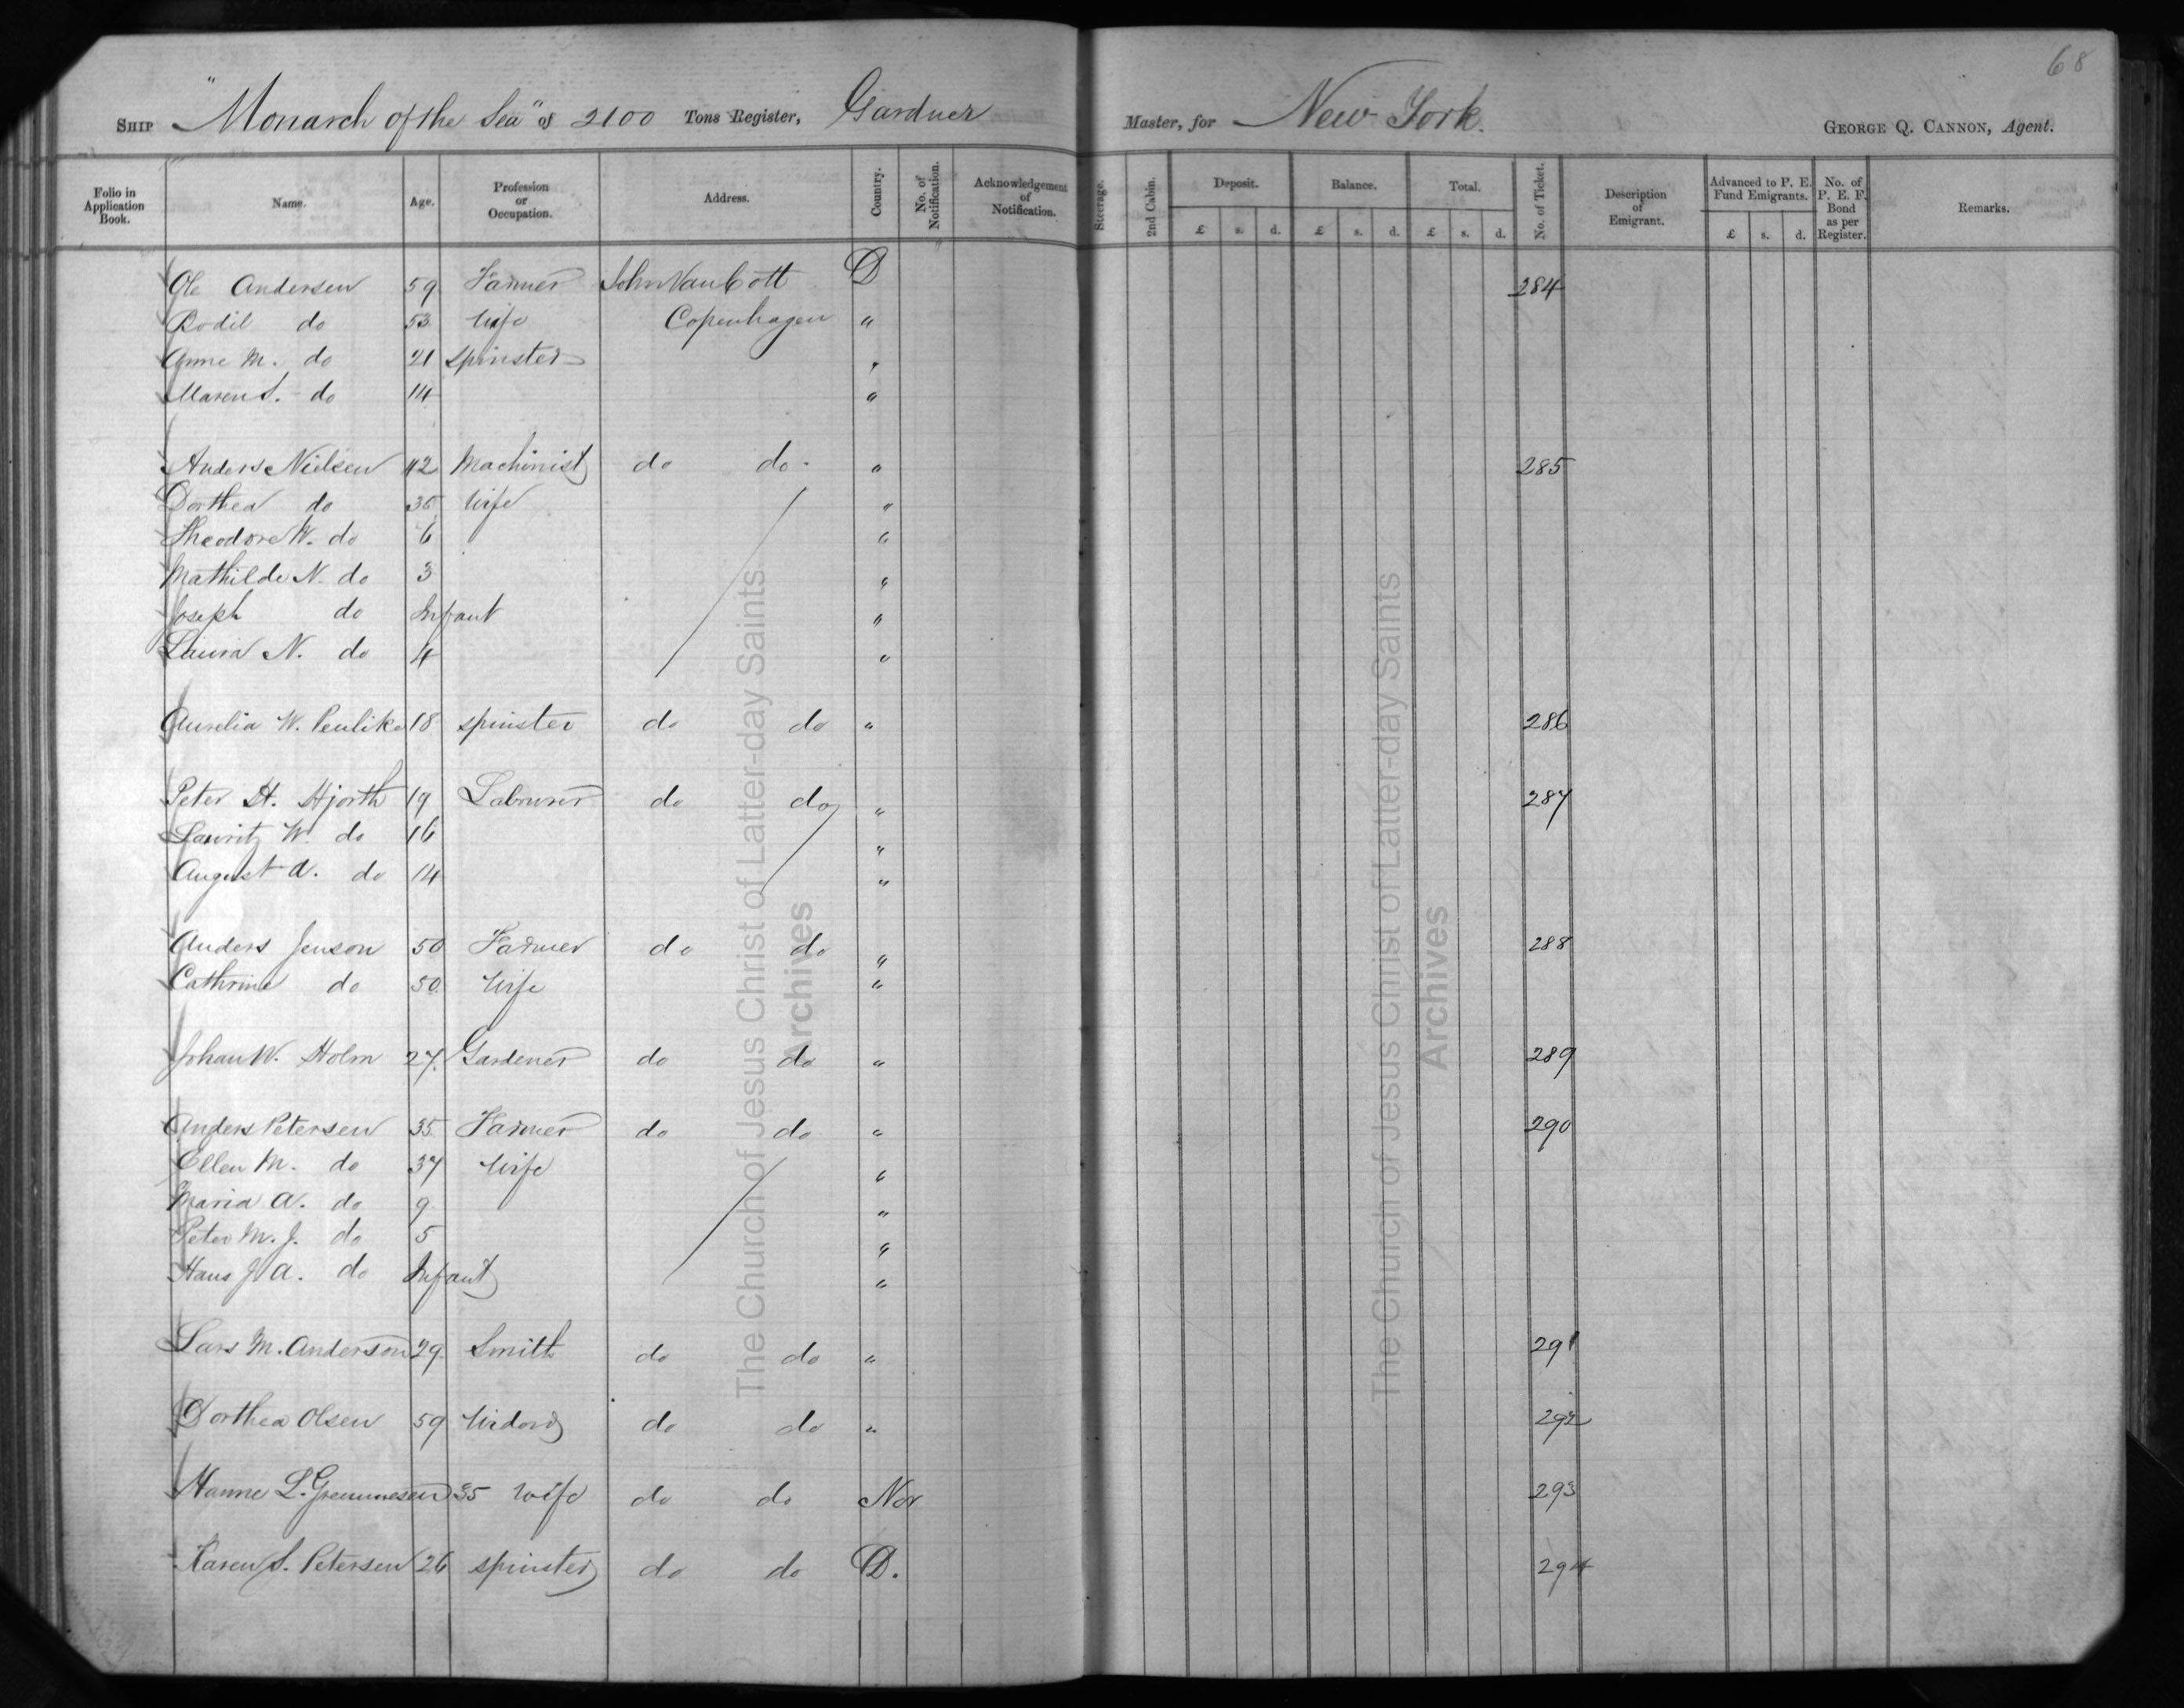 68
SHIP "Monarch of the Sea" of 2100 Tons Register, Gardner Master, for New York. GEORGE Q. CANNON, Agent.
Folio in Application Book. Name. Age. Profession or Occupation. Address. Country. No. of Notification. Acknowledgement of Notification. Steerage. 2nd Cabin. Deposit. Balance. Total. No. of Ticket. Description of Emigrant. Advanced to P. E. Fund Emigrants. No. of P. E. F. Bond as per Register. Remarks.
£ s. d. £ s. d. £ s. d. £ s. d.
Ole Andersen 59 Farmer John Van Cott D 284
Bodil do 53 Wife Copenhagen "
Anne M. do 21 spinster "
Maren S. do 14 "
Anders Nielsen 42 Machinist do do "  285
Dorthea do 35 Wife "
Theodore W. do 6 "
Mathilde N. do 3 "
Joseph do Infant "
Laura N. do 4 "
Aurelia W. 18 spinster do do " 286
Peter H. Hjorth 19 Labourer do do " 287
Lauritz W. do 16 "
August A. do 14 "
Anders Jenson 50 Farmer do do " 288
Cathrine do 50 Wife "
Johan W. Holm 27 Gardener do do " 289
Anders Petersen 35 Farmer do do " 290
Ellen M. do 37 Wife "
Maria A. do 9 "
Peter M. J. do 5 "
Hans J. A. do Infant "
Lars M. Anderson 29 Smith do do " 291
Dorthea Olsen 59 Widow do do " 292
Hanne L. 35 wife do do Nor 293
Karen S. Petersen 26 spinster do do D. 294
The Church of Jesus Christ of Latter-day Saints
Archives
The Church of Jesus Christ of Latter-day Saints
Archives